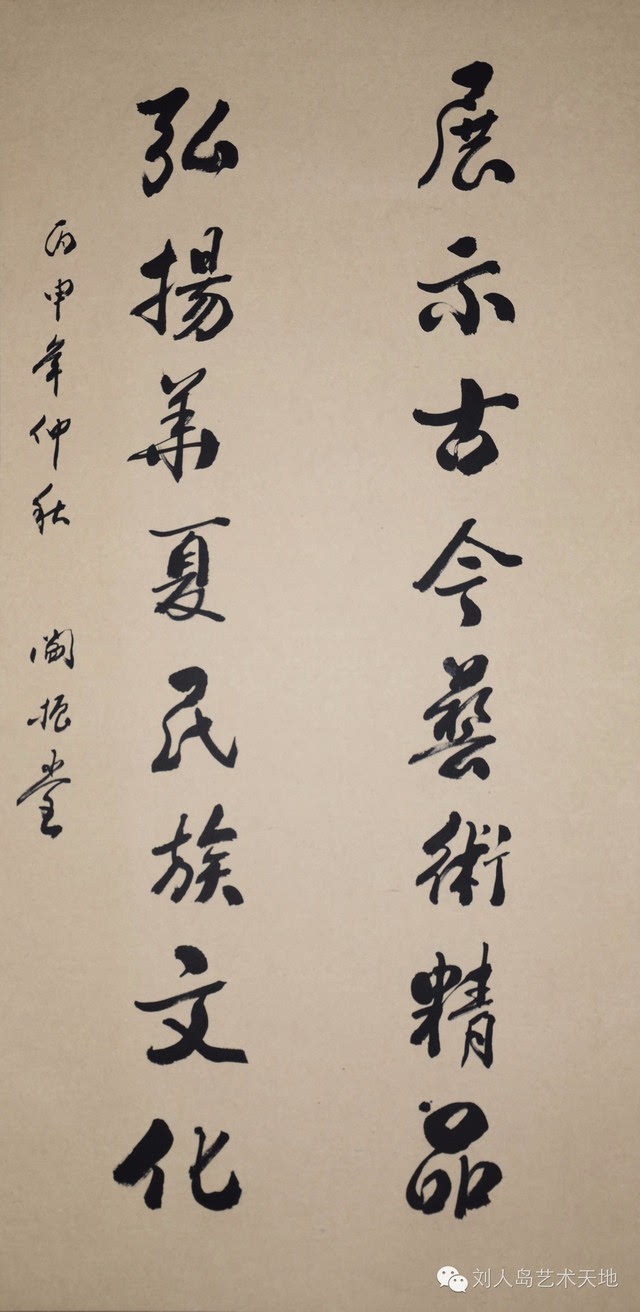 展示古今藝術精品
弘揚華夏民族文化
丙申年仲秋
閻振堂
刘人岛艺术天地